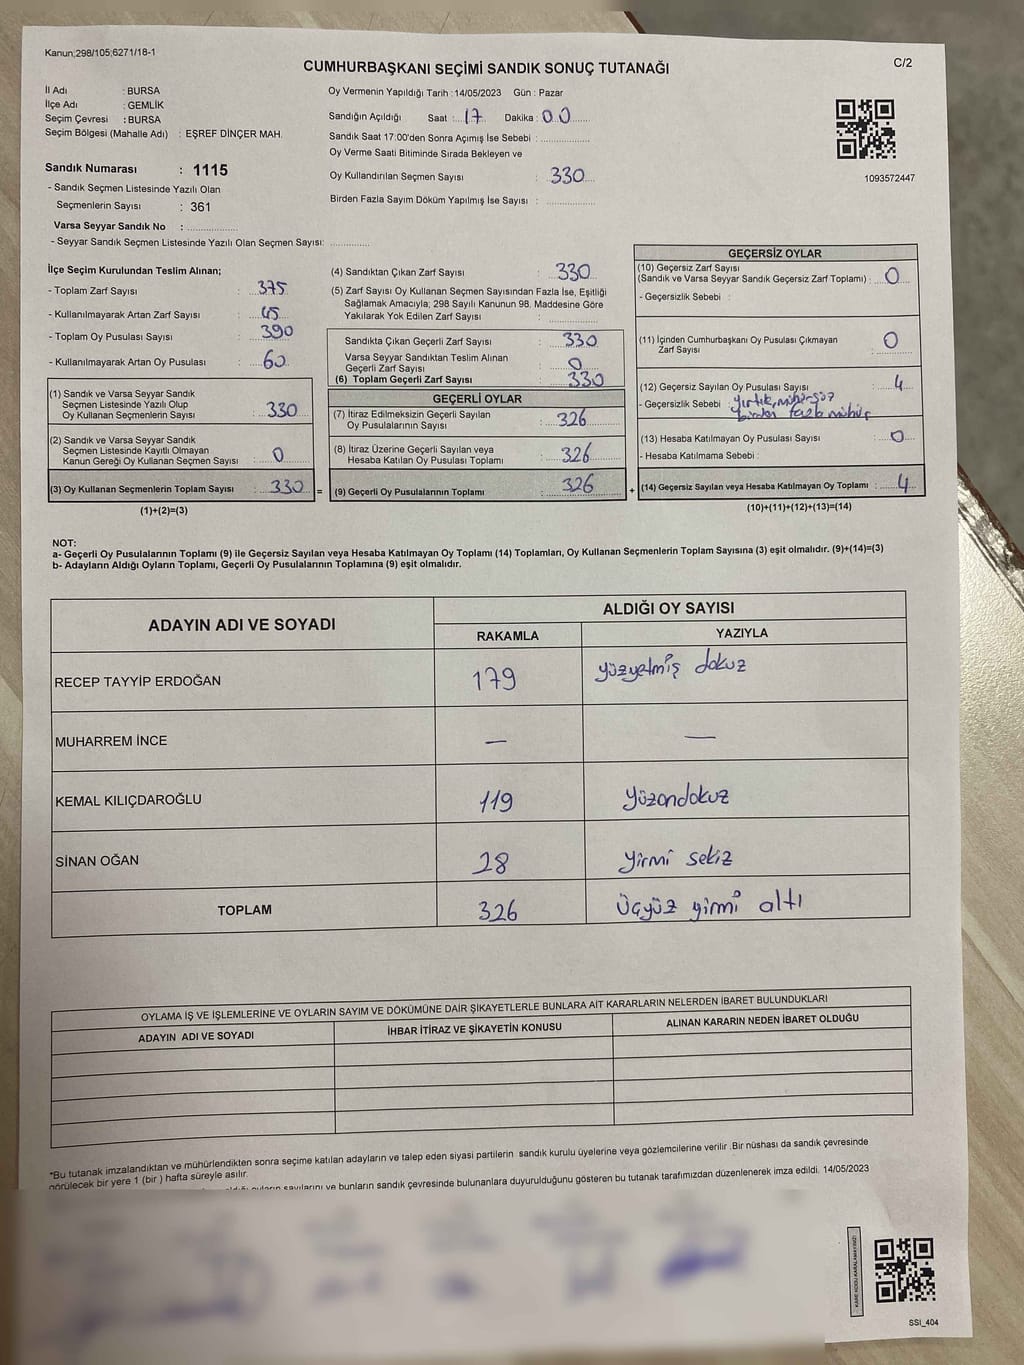 Kanun;298/105;6271/18-1
CUMHURBAŞKANI SEÇİMİ SANDIK SONUÇ TUTANAĞI
C/2
İl Adı : BURSA
İlçe Adı : GEMLİK
Seçim Çevresi : BURSA
Seçim Bölgesi (Mahalle Adı) : EŞREF DİNÇER MAH.
Oy Vermenin Yapıldığı Tarih : 14/05/2023 Gün : Pazar
Sandığın Açıldığı Saat : 17 Dakika : 00
Sandık Saat 17:00'den Sonra Açımış İse Sebebi :
Oy Verme Saati Bitiminde Sırada Bekleyen ve
Oy Kullandırılan Seçmen Sayısı : 330
Birden Fazla Sayım Döküm Yapılmış İse Sayısı :
1093572447
Sandık Numarası : 1115
- Sandık Seçmen Listesinde Yazılı Olan
Seçmenlerin Sayısı : 361
Varsa Seyyar Sandık No :
- Seyyar Sandık Seçmen Listesinde Yazılı Olan Seçmen Sayısı:
İlçe Seçim Kurulundan Teslim Alınan;
- Toplam Zarf Sayısı : 375
- Kullanılmayarak Artan Zarf Sayısı : 45
- Toplam Oy Pusulası Sayısı : 390
- Kullanılmayarak Artan Oy Pusulası : 60
(1) Sandık ve Varsa Seyyar Sandık
Seçmen Listesinde Yazılı Olup
Oy Kullanan Seçmenlerin Sayısı : 330
(2) Sandık ve Varsa Seyyar Sandık
Seçmen Listesinde Kayıtlı Olmayan
Kanun Gereği Oy Kullanan Seçmen Sayısı : 0
(3) Oy Kullanan Seçmenlerin Toplam Sayısı : 330 =
(1)+(2)=(3)
(4) Sandıktan Çıkan Zarf Sayısı : 330
(5) Zarf Sayısı Oy Kullanan Seçmen Sayısından Fazla İse, Eşitliği
Sağlamak Amacıyla; 298 Sayılı Kanunun 98. Maddesine Göre
Yakılarak Yok Edilen Zarf Sayısı :
Sandıkta Çıkan Geçerli Zarf Sayısı : 330
Varsa Seyyar Sandıktan Teslim Alınan
Geçerli Zarf Sayısı : 0
(6) Toplam Geçerli Zarf Sayısı : 330
GEÇERLİ OYLAR
(7) İtiraz Edilmeksizin Geçerli Sayılan
Oy Pusulalarının Sayısı : 326
(8) İtiraz Üzerine Geçerli Sayılan veya
Hesaba Katılan Oy Pusulası Toplamı : 326
(9) Geçerli Oy Pusulalarının Toplamı : 326 +
GEÇERSİZ OYLAR
(10) Geçersiz Zarf Sayısı
(Sandık ve Varsa Seyyar Sandık Geçersiz Zarf Toplamı) : 0
- Geçersizlik Sebebi :
(11) İçinden Cumhurbaşkanı Oy Pusulası Çıkmayan
Zarf Sayısı : 0
(12) Geçersiz Sayılan Oy Pusulası Sayısı : 4
- Geçersizlik Sebebi : yırtık, mühürsüz
birden fazla mühür
(13) Hesaba Katılmayan Oy Pusulası Sayısı : 0
- Hesaba Katılmama Sebebi :
(14) Geçersiz Sayılan veya Hesaba Katılmayan Oy Toplamı : 4
(10)+(11)+(12)+(13)=(14)
NOT:
a- Geçerli Oy Pusulalarının Toplamı (9) ile Geçersiz Sayılan veya Hesaba Katılmayan Oy Toplamı (14) Toplamları, Oy Kullanan Seçmenlerin Toplam Sayısına (3) eşit olmalıdır. (9)+(14)=(3)
b- Adayların Aldığı Oyların Toplamı, Geçerli Oy Pusulalarının Toplamına (9) eşit olmalıdır.
ADAYIN ADI VE SOYADI
ALDIĞI OY SAYISI
RAKAMLA YAZIYLA
RECEP TAYYİP ERDOĞAN 179 yüzyetmiş dokuz
MUHARREM İNCE — —
KEMAL KILIÇDAROĞLU 119 Yüzondokuz
SİNAN OĞAN 28 Yirmi sekiz
TOPLAM 326 Üçyüz yirmi altı
OYLAMA İŞ VE İŞLEMLERİNE VE OYLARIN SAYIM VE DÖKÜMÜNE DAİR ŞİKAYETLERLE BUNLARA AİT KARARLARIN NELERDEN İBARET BULUNDUKLARI
ADAYIN ADI VE SOYADI İHBAR İTİRAZ VE ŞİKAYETİN KONUSU ALINAN KARARIN NEDEN İBARET OLDUĞU
*Bu tutanak imzalandıktan ve mühürlendikten sonra seçime katılan adayların ve talep eden siyasi partilerin sandık kurulu üyelerine veya gözlemcilerine verilir .Bir nüshası da sandık çevresinde
görülecek bir yere 1 (bir ) hafta süreyle asılır.
sayılarını ve bunların sandık çevresinde bulunanlara duyurulduğunu gösteren bu tutanak tarafımızdan düzenlenerek imza edildi. 14/05/2023
KARE KODU KARALAMAYINIZ!
SSI_404